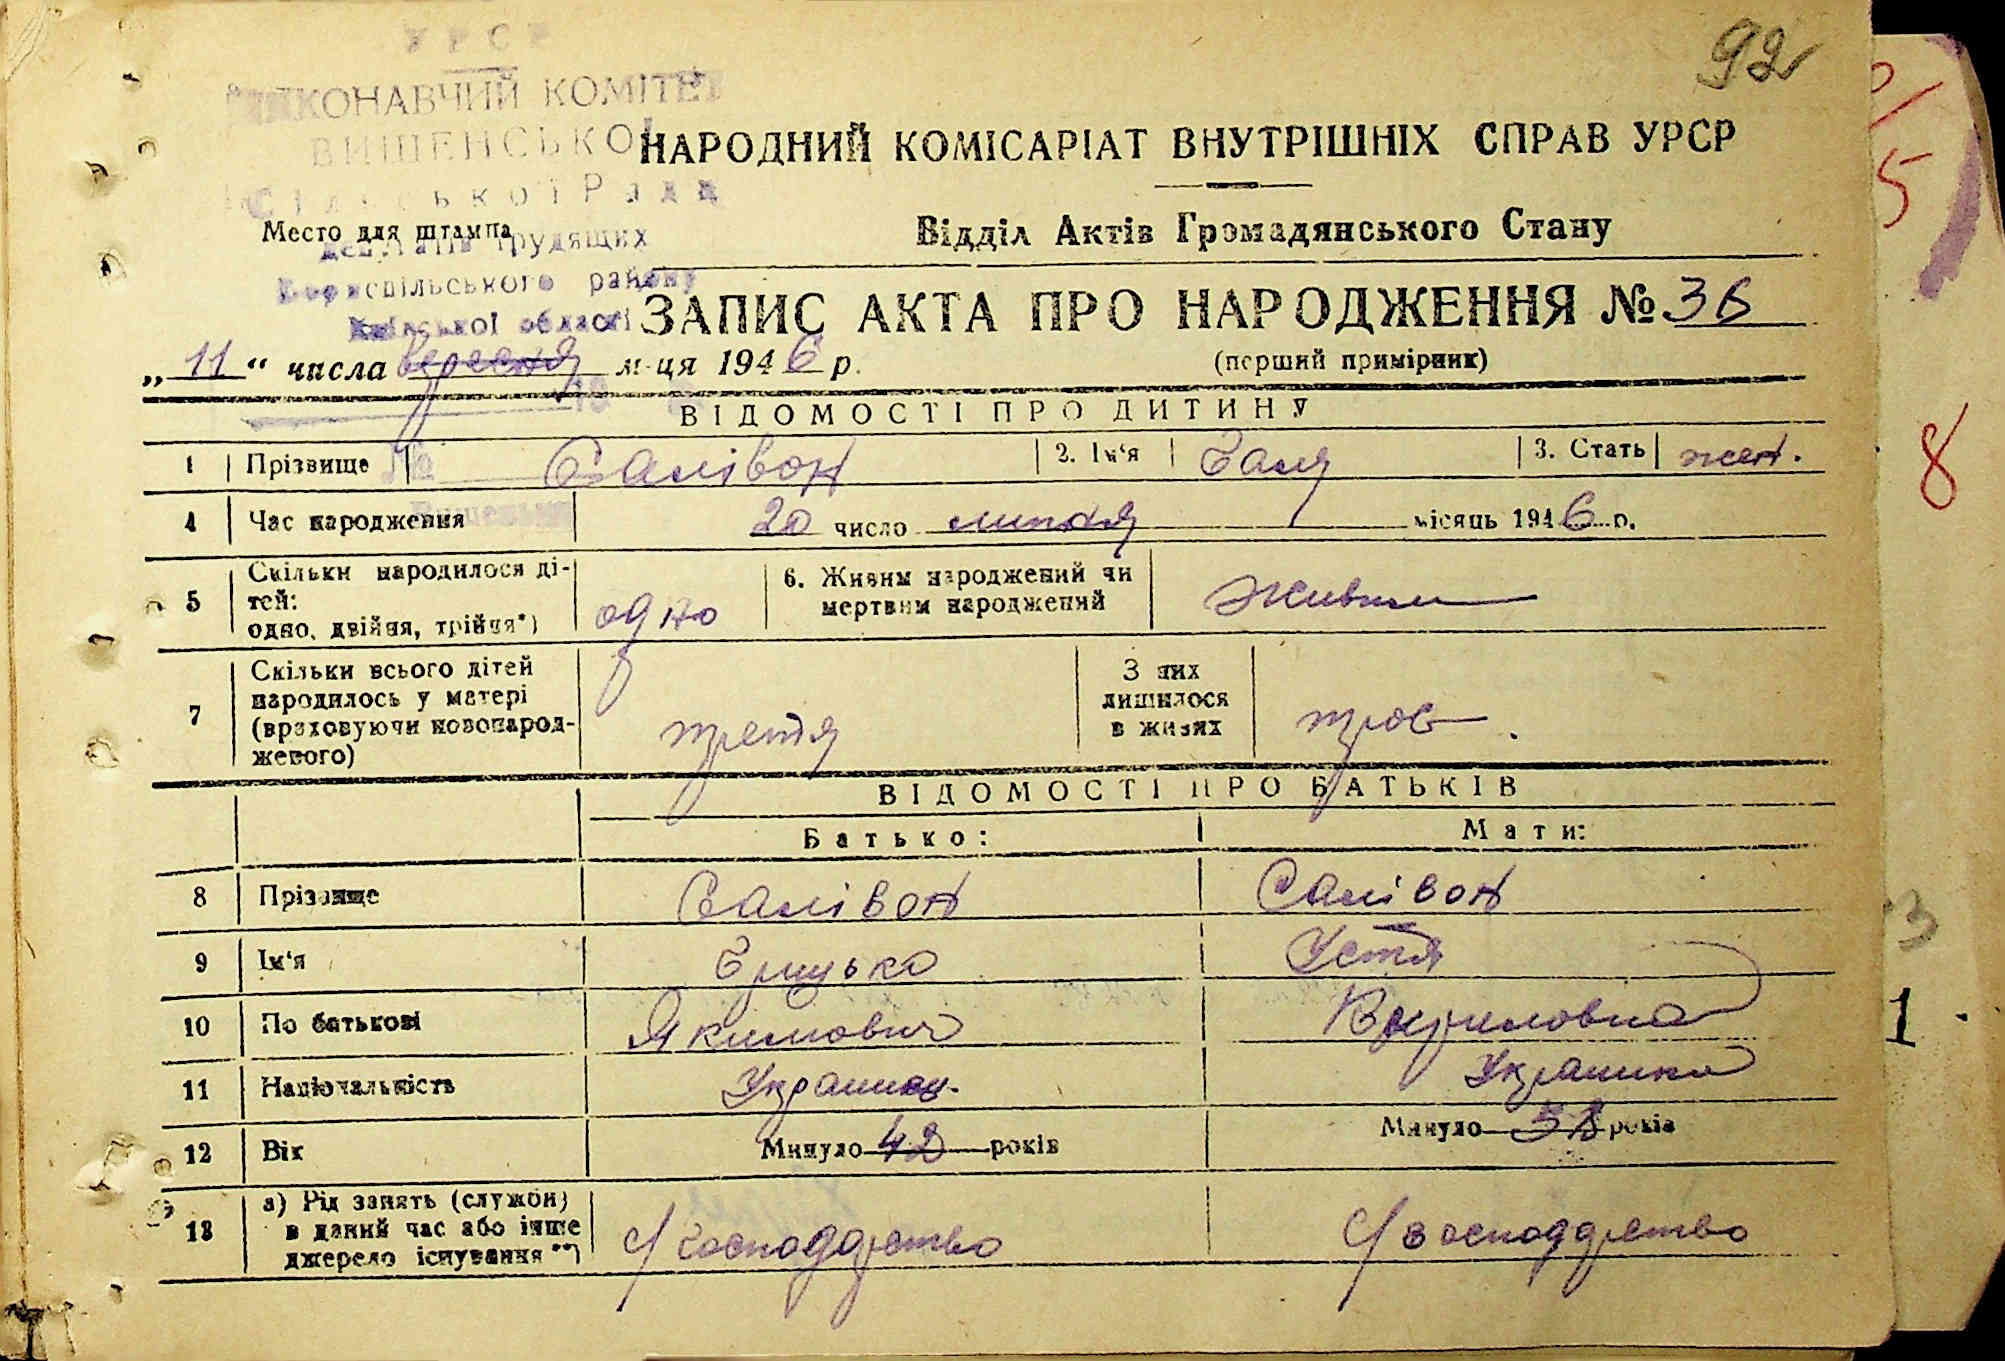 92
УРСР
ВИКОНАВЧИЙ КОМІТЕТ
ВИШЕНСЬКОЇ
Сільської Ради
депутатів трудящих
Бориспільського району
Київської області
Место для штампа
НАРОДНИЙ КОМІСАРІАТ ВНУТРІШНІХ СПРАВ УРСР
Відділ Актів Громадянського Стану
ЗАПИС АКТА ПРО НАРОДЖЕННЯ № 36
(перший примірник)
„ 11 “ числа вересня м-ця 1946 р.
ВІДОМОСТІ ПРО ДИТИНУ
1 Прізвище Салівон 2. Ім‘я Галя 3. Стать жен.
4 Час народження 20 число липня місяць 1946 р.
5 Скільки народилося дітей: одно, двійня, трійня*) одно 6. Живим народжений чи мертвим народжений Живим
7 Скільки всього дітей народилось у матері (враховуючи новонародженого) третя З них лишилося в живих троє
ВІДОМОСТІ ПРО БАТЬКІВ
Батько: Мати:
8 Прізвище Салівон Салівон
9 Ім‘я Грицько Устя
10 По батькові Якимович Кириловна
11 Національність Українец. Українка
12 Вік Минуло 42 років Минуло років
13 а) Рід занять (служби) в даний час або інше джерело існування**) с/господарство с/господарство
5
8
3
1